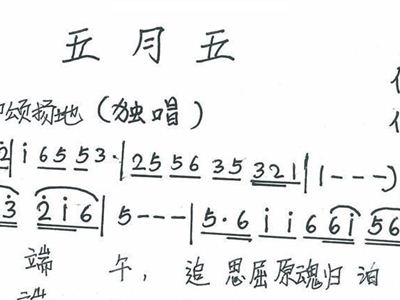 五月五
颂扬地（独唱）
2̇ | i 6 5 5 3 · | 2 5 5 6 3 5 3 2 1 | 1 - - - )
3̇ 2̇ i 6 | 5 - - - | 5 · 6 i i 6 6 i 5 6
端 午， 追 思屈原魂归 泊